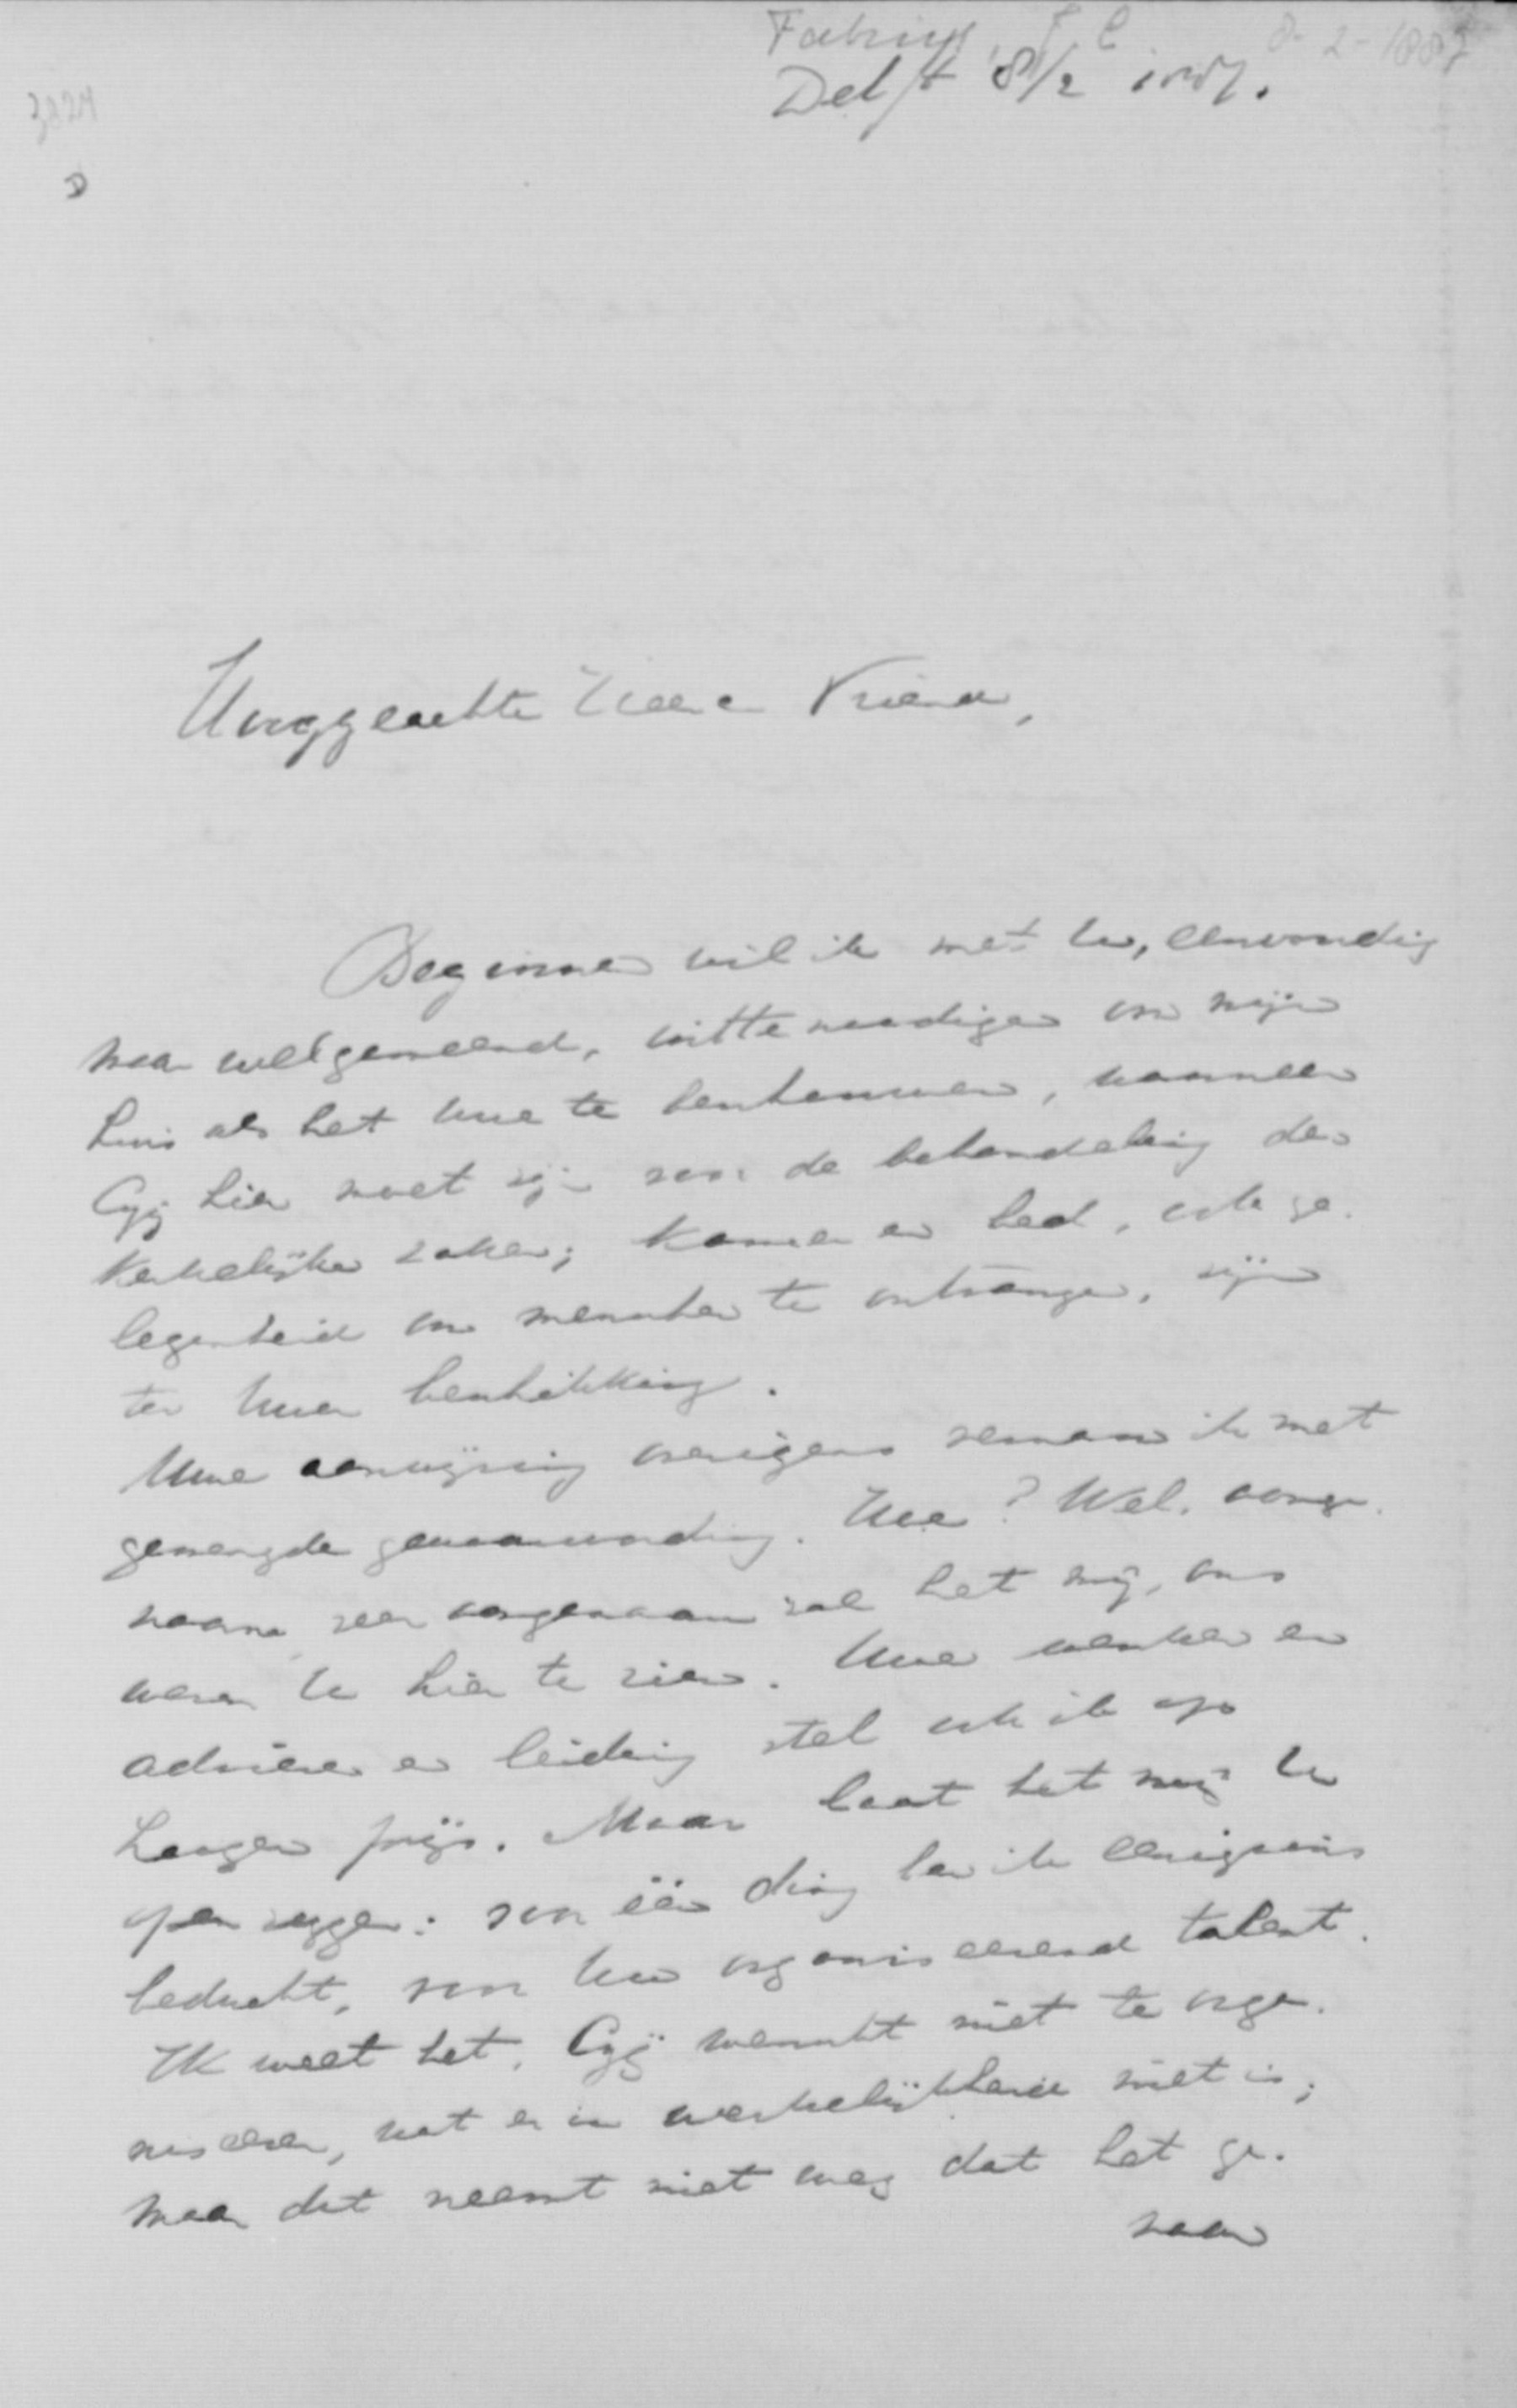 Fabius, J C 8-2-1887
Delft 8/2 1887.
3224
D
Hooggeachte Heer en Vriend,
Beginnen wil ik met U, eenvoudig
maar welgemeend, uit te noodigen om mijn
huis als het Uwe te beschouwen, wanneer
Gij hier moet zijn voor de behandeling der
Kerkelijke zaken; kamer en bed, ook ge-
legenheid om menschen te ontvangen, zijn
ter Uwer beschikking.
Uwe aanwijzing overigens vernam ik met
gemengde gewaarwording. Hoe? Wel, aange-
naam, zeer aangenaam zal het mij, ons
wezen U hier te zien. Uwe wenken en
adviezen en leiding stel ook ik op
hoogen prijs. Maar laat het mij U
open zeggen: voor één ding ben ik eenigszins
beducht, voor Uw organiseerend talent.
Ik weet het, Gij wenscht niet te orga-
niseeren, wat er in werkelijkheid niet is;
maar dat neemt niet weg dat het ge-
vaar